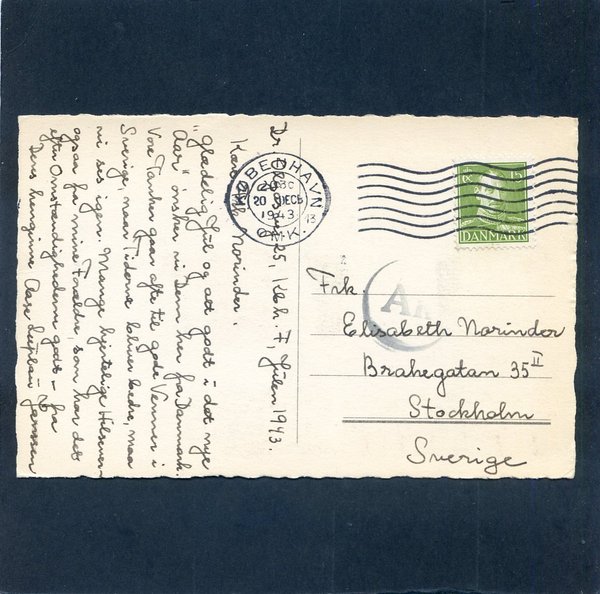 Kbh. F, Julen 1943.
Kære Norinder.
"Glædelig Jul og alt godt i det nye
Aar" ønsker vi Dem her fra Danmark.
Vore Tanker gaar ofte til gode Venner i
Sverige, naar Tiderne bliver bedre, maa
vi ses igen. Mange hjertelige Hilsner
ogsaa fra mine Forældre, som har det
efter Omstændighederne godt - fra
Deres hengivne Aase Janssen
KØBENHAVN
20 DECB
1943 13
OMK.
15
DANMARK
Frk
Elisabeth Norinder
Brahegatan 35 II
Stockholm
Sverige